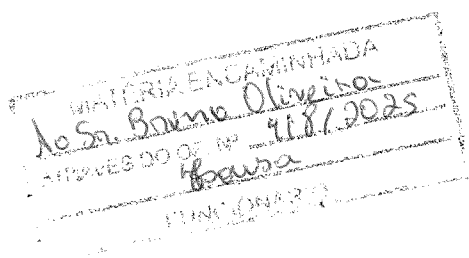 MATÉRIA ENCAMINHADA
Ao Sr. Bruno Oliveira
ATRAVÉS DO OF. Nº 418/2025
Sousa
FUNCIONÁRIO